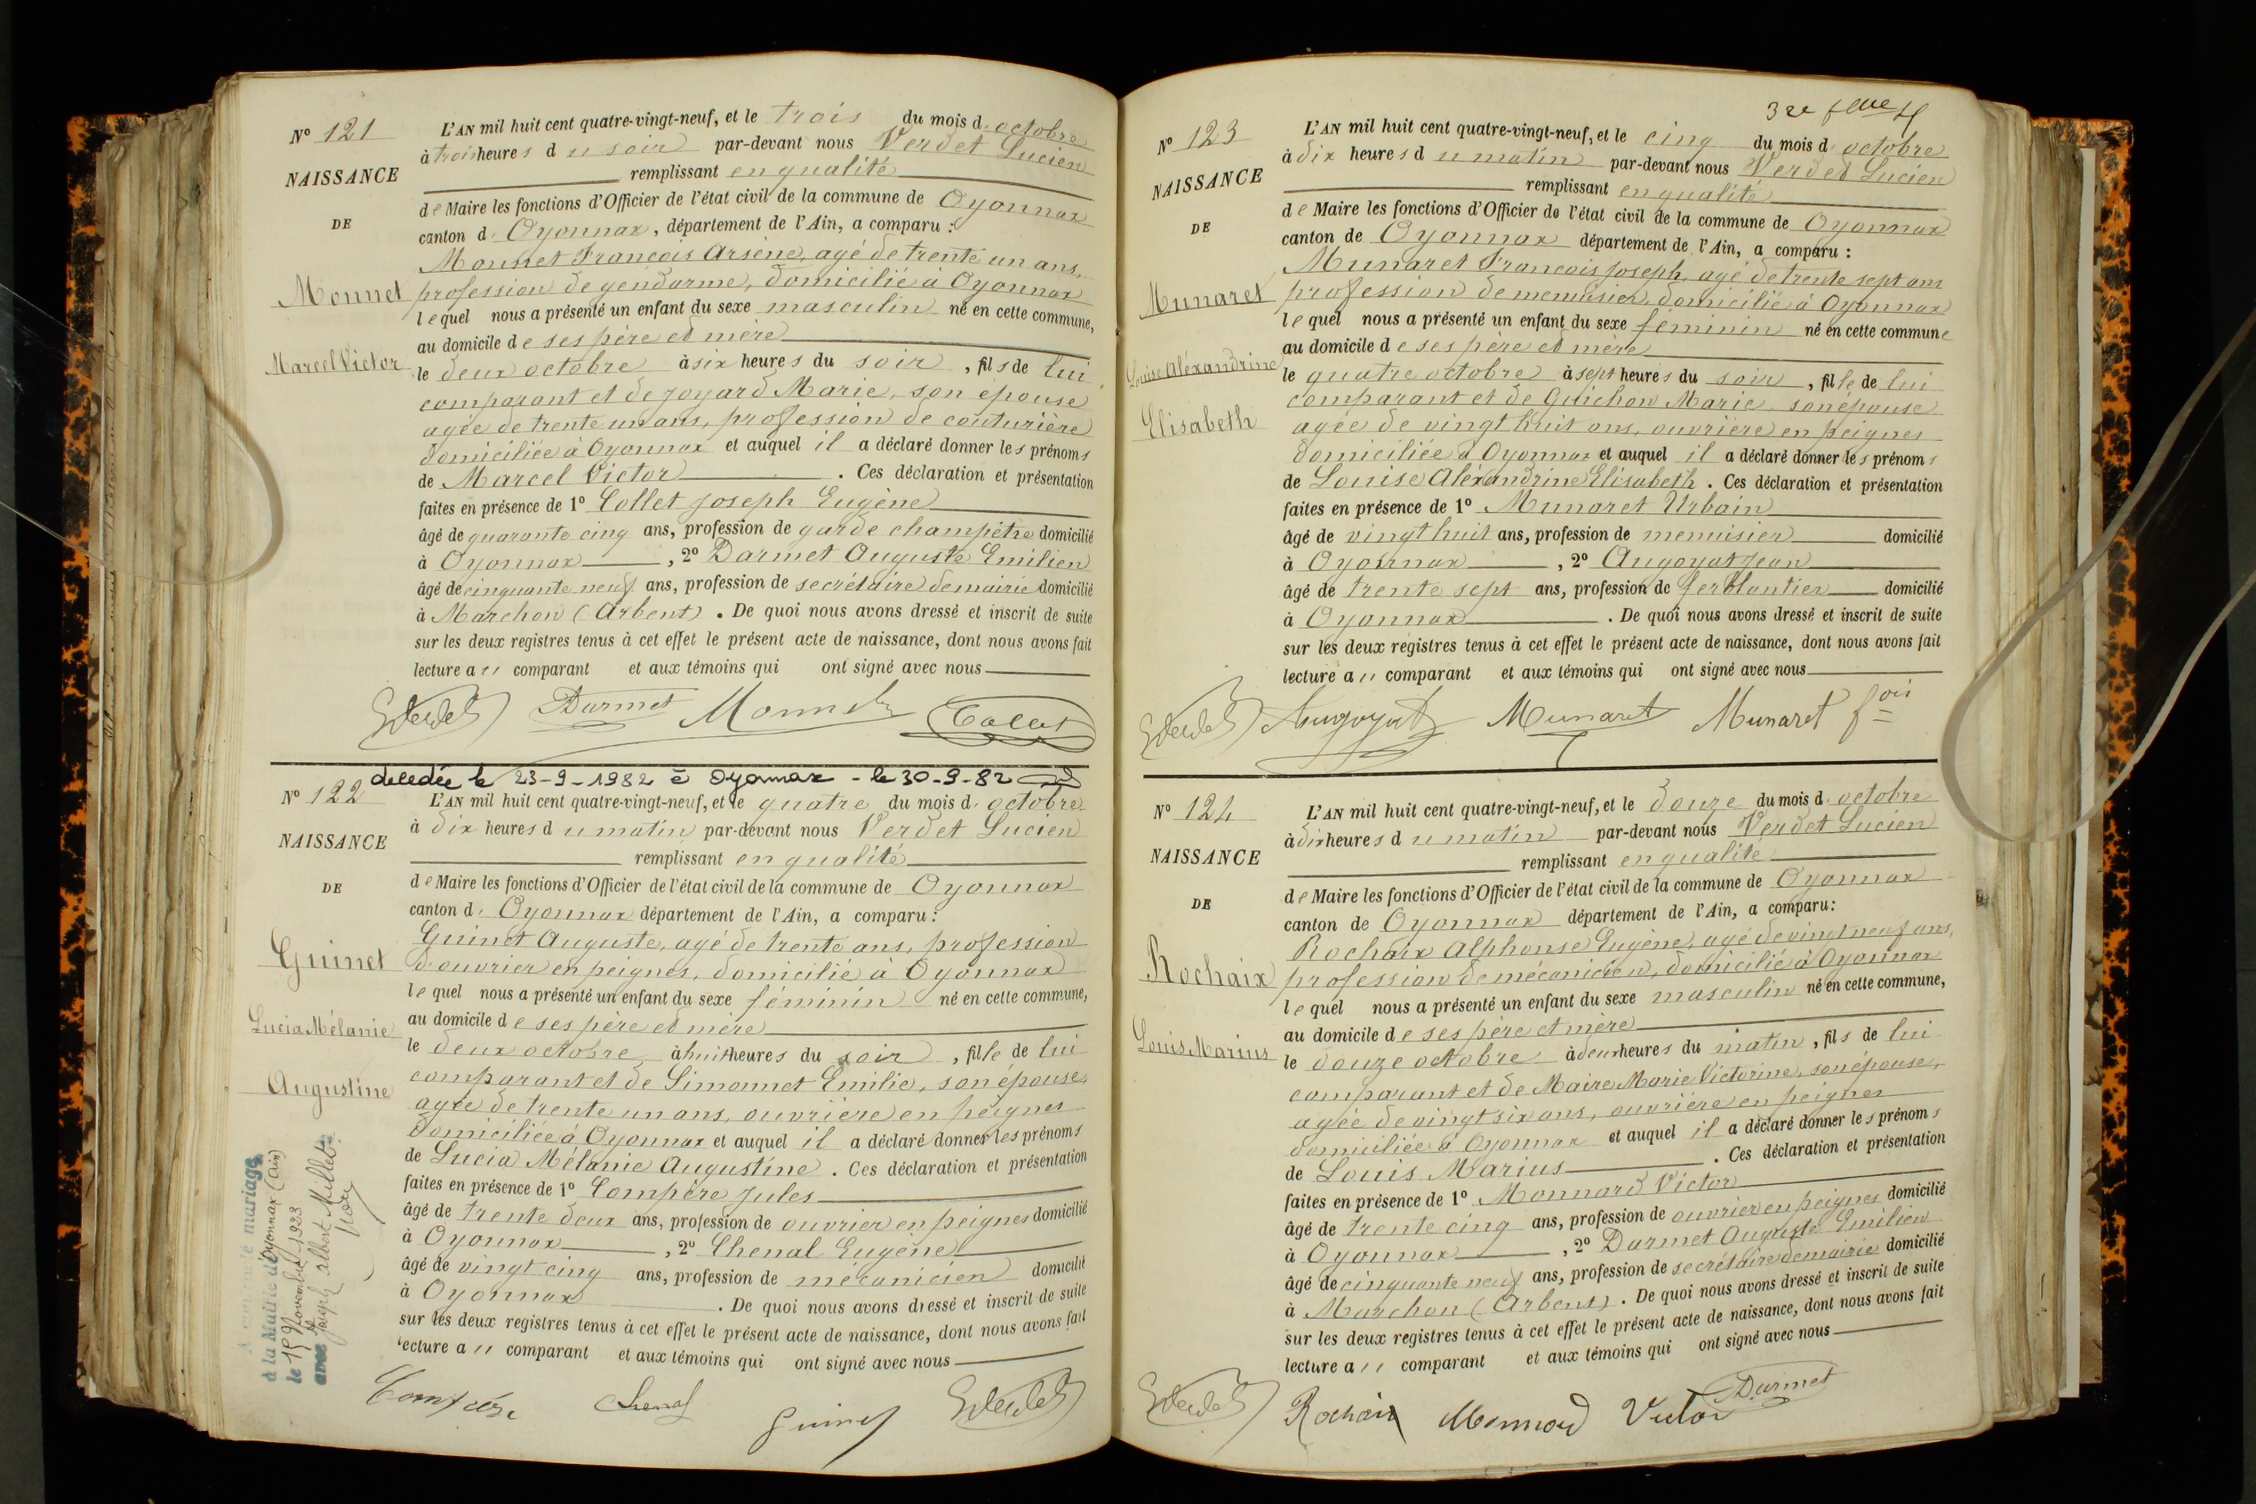 Nº 121
NAISSANCE
DE
Monnet
Marcel Victor
L'AN mil huit cent quatre-vingt-neuf, et le trois du mois d'octobre
à trois heures du soir par-devant nous Verdet Lucien
remplissant en qualité
de Maire les fonctions d'Officier de l'état civil de la commune de Oyonnax
canton d' Oyonnax, département de l'Ain, a comparu :
Monnet François Arsène, agé de trente un ans,
profession de gendarme, domicilié à Oyonnax
lequel nous a présenté un enfant du sexe masculin né en cette commune,
au domicile de ses père et mère
le deux octobre à six heures du soir, fils de lui
comparant et de Joyard Marie, son épouse
agée de trente un ans, profession de couturière
domiciliée à Oyonnax et auquel il a déclaré donner les prénoms
de Marcel Victor. Ces déclaration et présentation
faites en présence de 1º Collet Joseph Eugène
âgé de quarante cinq ans, profession de garde champêtre domicilié
à Oyonnax, 2º Darmet Auguste Emilien
âgé de cinquante neuf ans, profession de secrétaire de mairie domicilié
à Marchon (Arbent). De quoi nous avons dressé et inscrit de suite
sur les deux registres tenus à cet effet le présent acte de naissance, dont nous avons fait
lecture au comparant et aux témoins qui ont signé avec nous
Verdet Darmet Monnet Collet
décédée le 23-9-1982 à Oyonnax - le 30-9-82
Nº 122
NAISSANCE
DE
Guinet
Lucia Mélanie
Augustine
mariage
à la Mairie d'Oyonnax (Ain)
le 19 Novembre 1923
avec Joseph Albert Millet
L'AN mil huit cent quatre-vingt-neuf, et le quatre du mois d'octobre
à dix heures du matin par-devant nous Verdet Lucien
remplissant en qualité
de Maire les fonctions d'Officier de l'état civil de la commune de Oyonnax
canton d' Oyonnax département de l'Ain, a comparu :
Guinet Auguste, agé de trente ans, profession
d'ouvrier en peignes, domicilié à Oyonnax
lequel nous a présenté un enfant du sexe féminin né en cette commune,
au domicile de ses père et mère
le deux octobre à huit heures du soir, fille de lui
comparant et de Simonnet Emilie, son épouse,
agée de trente un ans, ouvrière en peignes
domiciliée à Oyonnax et auquel il a déclaré donner les prénoms
de Lucia Mélanie Augustine. Ces déclaration et présentation
faites en présence de 1º Compère Jules
âgé de trente deux ans, profession de ouvrier en peignes domicilié
à Oyonnax, 2º Chenal Eugène
âgé de vingt cinq ans, profession de mécanicien domicilié
à Oyonnax. De quoi nous avons dressé et inscrit de suite
sur les deux registres tenus à cet effet le présent acte de naissance, dont nous avons fait
lecture au comparant et aux témoins qui ont signé avec nous
Compère Chenal Guinet Verdet
Nº 123
NAISSANCE
DE
Munaret
Louise Aléxandrine
Elisabeth
L'AN mil huit cent quatre-vingt-neuf, et le cinq du mois d'octobre
à dix heures du matin par-devant nous Verdet Lucien
remplissant en qualité
de Maire les fonctions d'Officier de l'état civil de la commune de Oyonnax
canton de Oyonnax département de l'Ain, a comparu :
Munaret François Joseph, agé de trente sept ans
profession de menuisier, domicilié à Oyonnax
lequel nous a présenté un enfant du sexe féminin né en cette commune
au domicile de ses père et mère
le quatre octobre à sept heures du soir, fille de lui
comparant et de Guichon Marie, son épouse
agée de vingt huit ans, ouvrière en peignes
domiciliée à Oyonnax et auquel il a déclaré donner les prénoms
de Louise Aléxandrine Elisabeth. Ces déclaration et présentation
faites en présence de 1º Munaret Urbain
âgé de vingt huit ans, profession de menuisier domicilié
à Oyonnax, 2º Augoyat Jean
âgé de trente sept ans, profession de ferblantier domicilié
à Oyonnax. De quoi nous avons dressé et inscrit de suite
sur les deux registres tenus à cet effet le présent acte de naissance, dont nous avons fait
lecture au comparant et aux témoins qui ont signé avec nous
Verdet Augoyat Munaret Munaret fois
Nº 124
NAISSANCE
DE
Rochaix
Louis Marius
L'AN mil huit cent quatre-vingt-neuf, et le douze du mois d'octobre
à dix heures du matin par-devant nous Verdet Lucien
remplissant en qualité
de Maire les fonctions d'Officier de l'état civil de la commune de Oyonnax
canton de Oyonnax département de l'Ain, a comparu :
Rochaix Alphonse Eugène, agé de vingt neuf ans,
profession de mécanicien, domicilié à Oyonnax
lequel nous a présenté un enfant du sexe masculin né en cette commune,
au domicile de ses père et mère
le douze octobre à deux heures du matin, fils de lui
comparant et de Maire Marie Victorine, son épouse,
agée de vingt six ans, ouvrière en peignes
domiciliée à Oyonnax et auquel il a déclaré donner les prénoms
de Louis Marius. Ces déclaration et présentation
faites en présence de 1º Monnard Victor
âgé de trente cinq ans, profession de ouvrier en peignes domicilié
à Oyonnax, 2º Darmet Auguste Emilien
âgé de cinquante neuf ans, profession de secrétaire de mairie domicilié
à Marchon (Arbent). De quoi nous avons dressé et inscrit de suite
sur les deux registres tenus à cet effet le présent acte de naissance, dont nous avons fait
lecture au comparant et aux témoins qui ont signé avec nous
Verdet Rochaix Monnard Victor Darmet